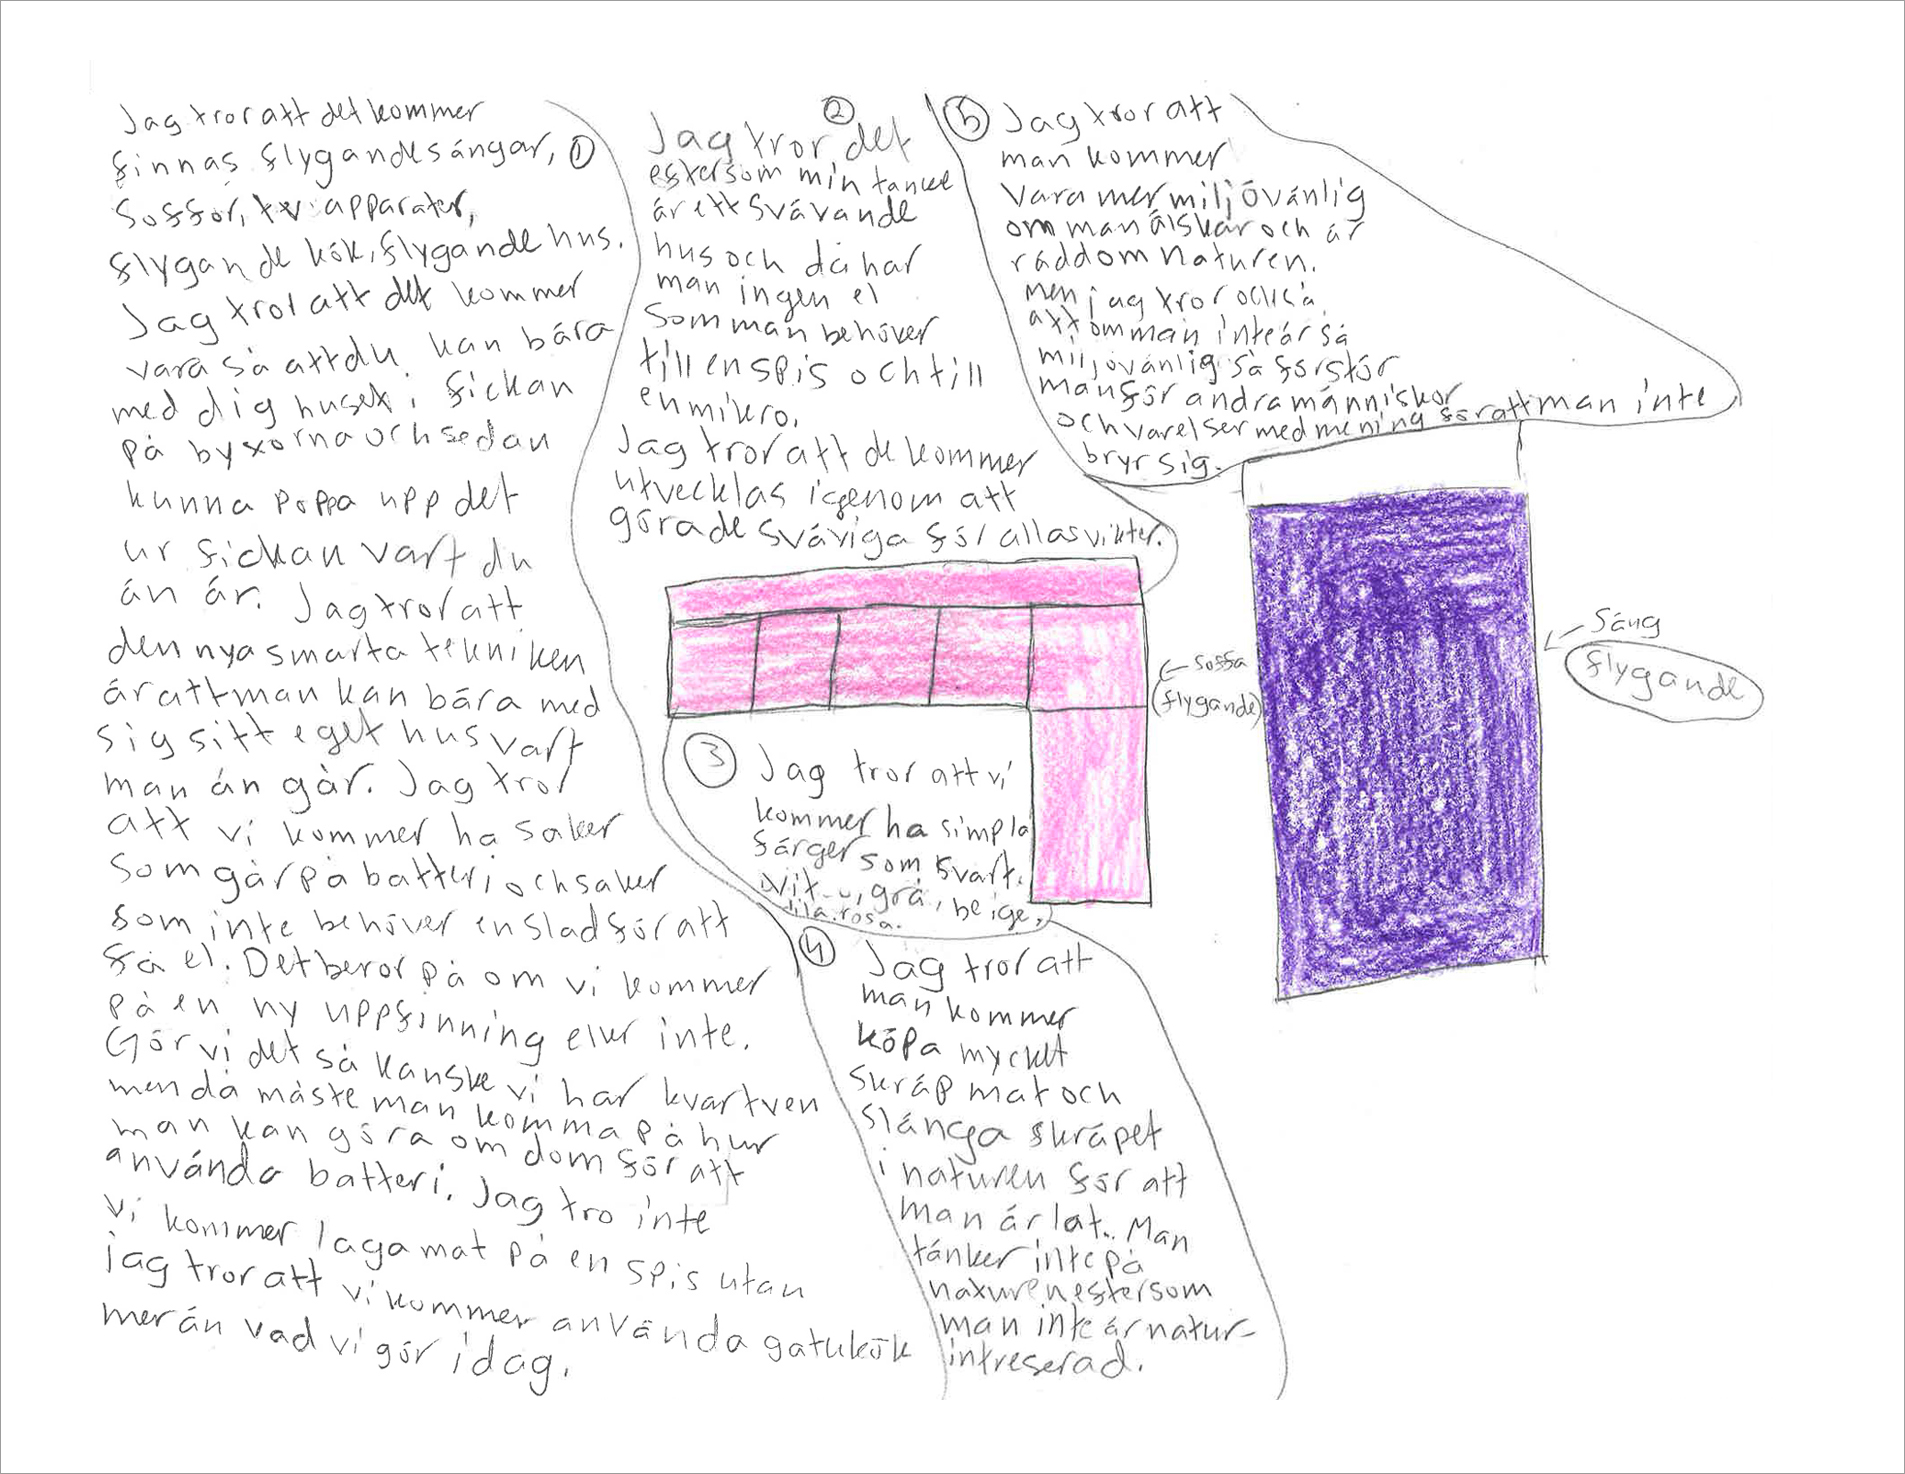 Jag tror att det kommer
finnas flygande sängar, ①
Soffor, tv apparater,
flygande kök, flygande hus.
Jag tror att det kommer
vara så att du kan bära
med dig huset i fickan
på byxorna och sedan
kunna poppa upp det
ur fickan vart du
än är. Jag tror att
den nya smarta tekniken
är att man kan bära med
sig sitt eget hus vart
man än går. Jag tror
att vi kommer ha saker
som går på batteri och saker
som inte behöver en sladd för att
få el. Det beror på om vi kommer
på en ny uppfinning eller inte.
Gör vi det så kanske vi har kvar tven
men då måste man komma på hur
man kan göra om dom för att
använda batteri. Jag tro inte
vi kommer laga mat på en spis utan
jag tror att vi kommer använda gatukök
mer än vad vi gör idag.
②
Jag tror det
eftersom min tanke
är ett svävande
hus och då har
man ingen el
som man behöver
till en spis och till
en mikro.
Jag tror att de kommer
utvecklas igenom att
göra de sväviga för allas vikter.
← soffa
(flygande)
③ Jag tror att vi
kommer ha simpla
färger som svart.
vit, grå, beige,
lila. rosa.
④ Jag tror att
man kommer
köpa myckt
skräp mat och
slänga skräpet
i naturen för att
man är lat.. Man
tänker inte på
naturen eftersom
man inte är natur-
intreserad.
⑤ Jag tror att
man kommer
vara mer miljövänlig
om man älskar och är
rädd om naturen.
men jag tror också
att om man inte är så
miljövänlig så förstör
man för andra människor
och varelser med mening för att man inte
bryr sig.
← Säng
flygande